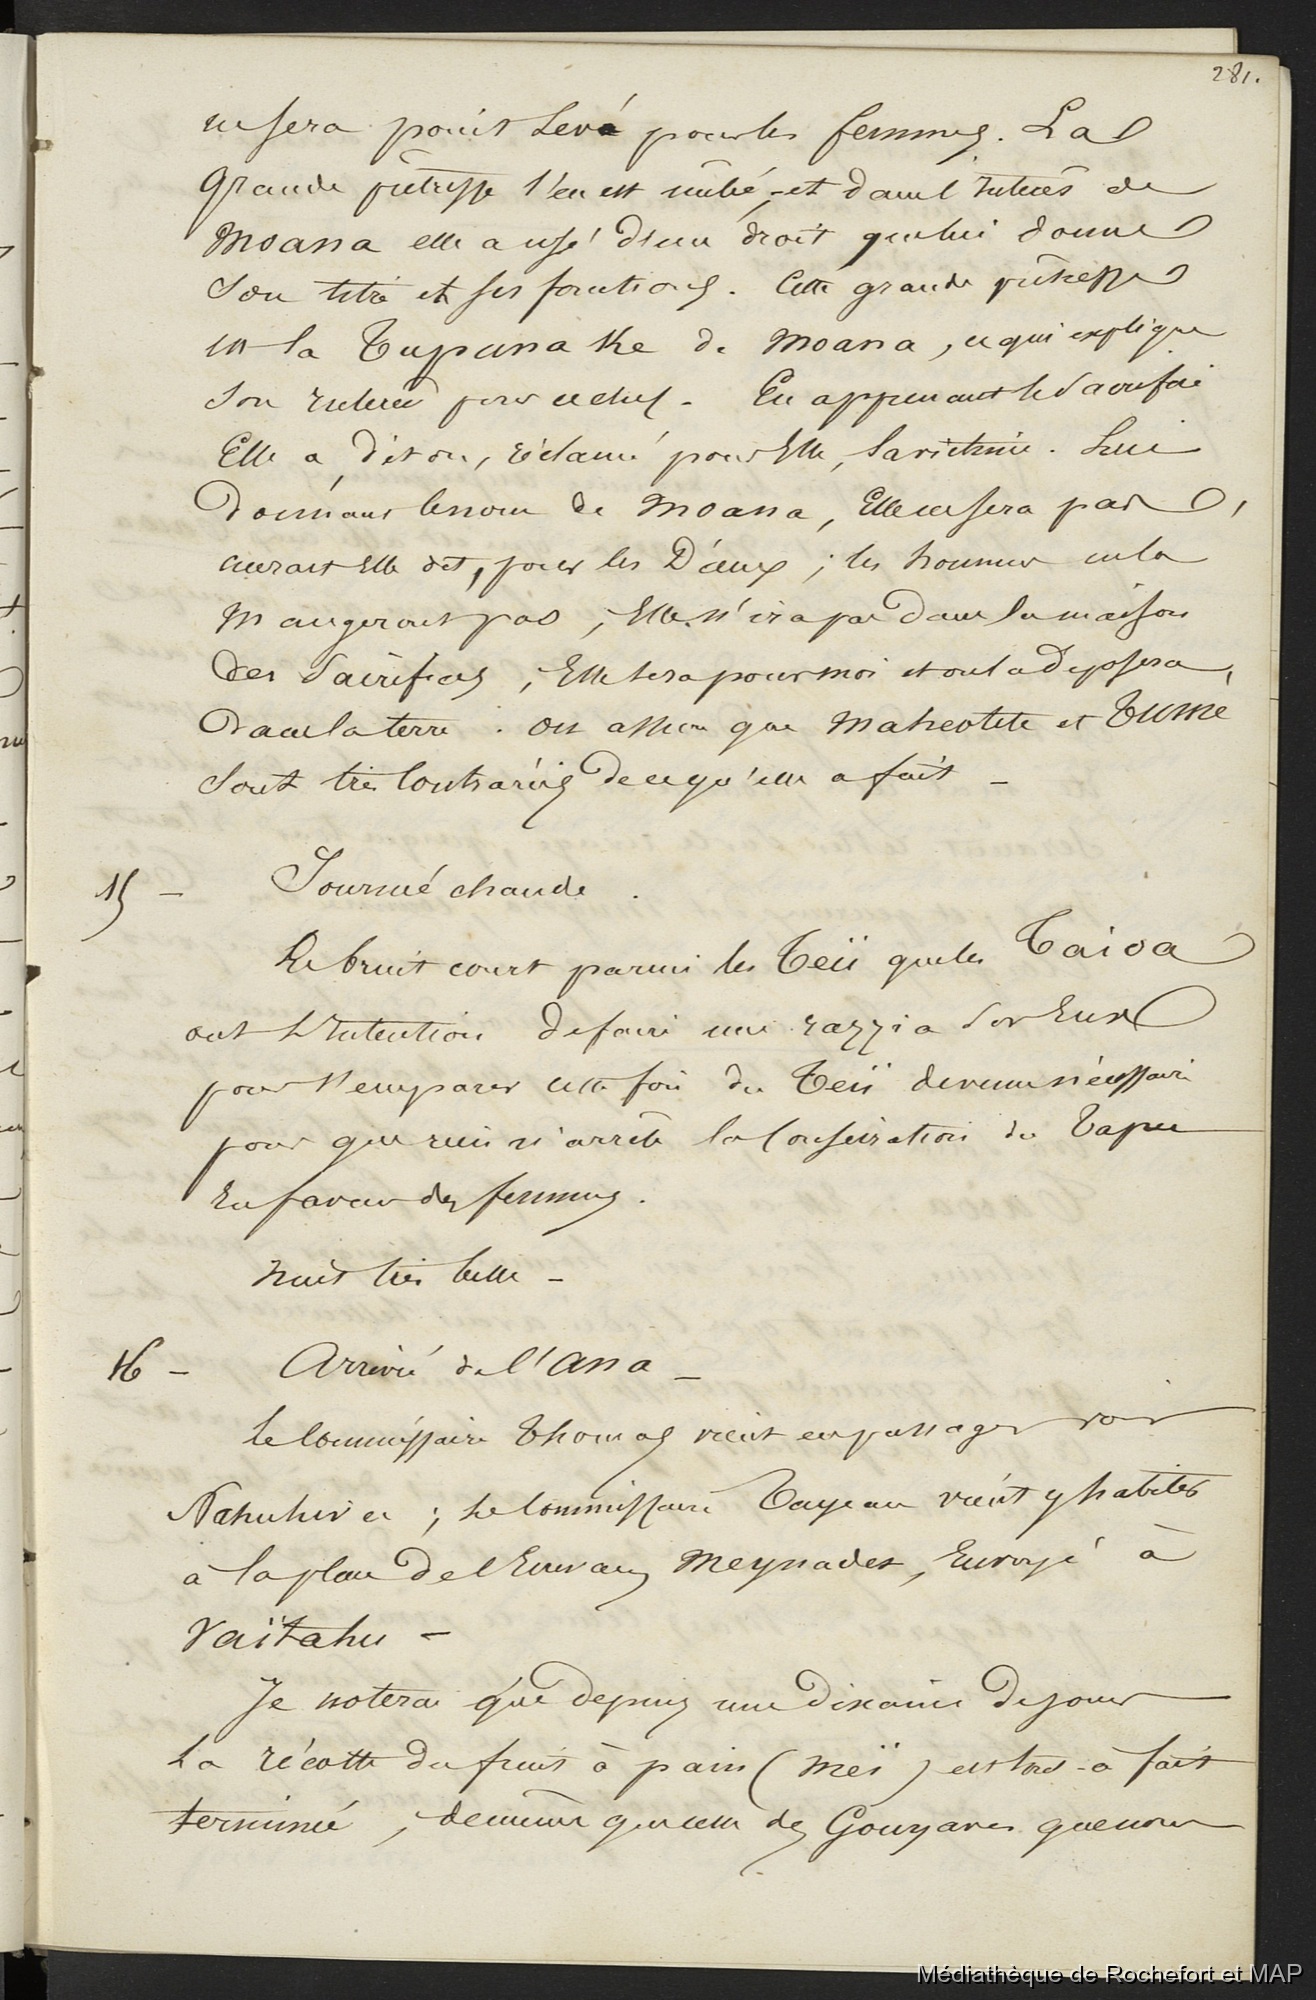 281.
ne sera point levé pour les femmes. La
Grande prêtresse s'en est mêlée, et dans l'intérêt de
Moana elle a usé d'un droit que lui donne
son titre et ses fonctions. Cette grande prêtresse
est la Tupuna de Moana, ce qui explique
son intérêt pour ce chef. En apprenant le sacrifice
Elle a, dit on, réclamé pour Elle, la victime. Lui
donnant le nom de Moana, Elle ne sera pas,
aurait elle dit, pour les Dieux ; les hommes ne la
mangeront pas ; Elle n'ira pas dans la maison
des Sacrifices ; Elle sera pour moi et on la déposera
dans la terre. On assure que Maheotete et
sont très contrariés de ce qu'elle a fait –
15 – Journée chaude.
Le bruit court parmi les Teii que les Taioa
ont l'intention de faire une razzia sur Eux
pour s'emparer cette fois du Teii devenu nécessaire
pour que rien n'arrête la consécration du Tapu
en faveur des femmes.
Nuit très belle –
16 – Arrivée de l'Ana –
Le Commissaire Thomas vient en passager voir
Nahuhiva ; le Commissaire Tayeau vient y habiter
à la place de l'Ecrivain Meynadet, Envoyé à
Vaïtahu –
Je noterai que depuis une dixaine de jours
la récolte du fruit à pain (Meï) est tout-à-fait
terminée, de même que celle des Gouyaves que nous
Médiathèque de Rochefort et MAP